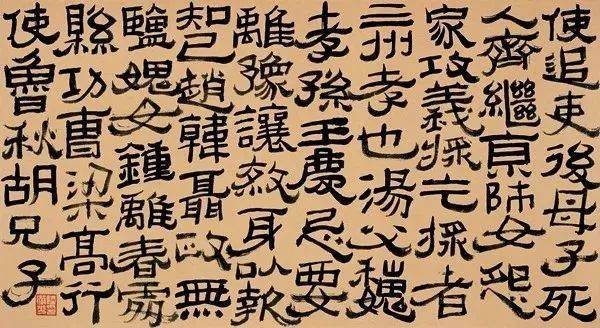 使追吏後母子死
人齊繼京師女怨
家攻義採亡採者
三州孝也湯父魏
孝孫王慶忌要
離豫讓煞身以報
知己趙韓聶政無
鹽媿女鍾離春處
縣功曹梁高行
使魯秋胡兄子